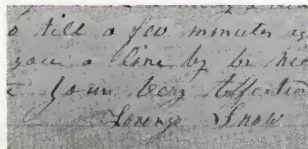 o till a few minutes ag
you a line by be
your very Affectio
Lorenzo Snow